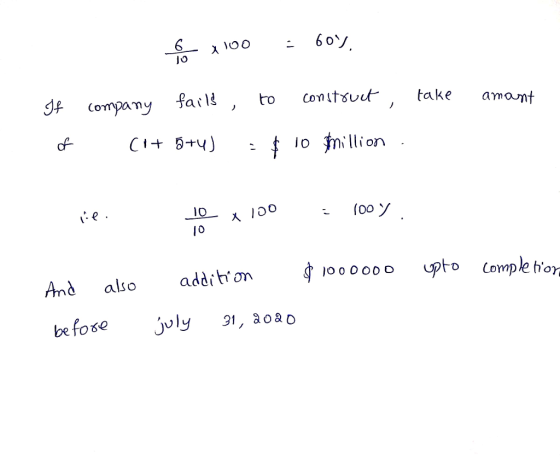 6/10 x 100 = 60%.
If company fails, to construct, take amant
of (1+ 5+4) = $ 10 million.
i.e. 10/10 x 100 = 100%.
And also addition $ 1000000 upto completion
before july 31, 2020